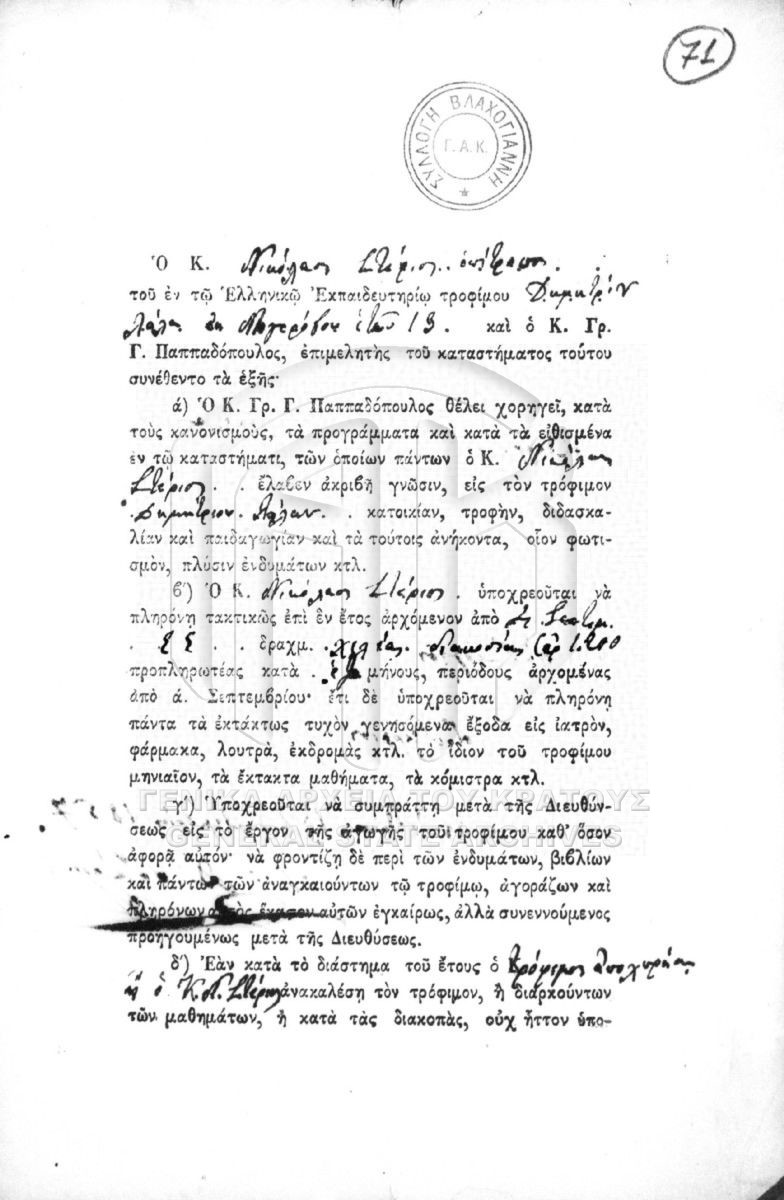 71
ΣΥΛΛΟΓΗ ΒΛΑΧΟΓΙΑΝΝΗ
Γ.Α.Κ.
Ὁ Κ. Νικόλαος Στέριος ἐπίτροπος
τοῦ ἐν τῷ Ἑλληνικῷ Ἐκπαιδευτηρίῳ τροφίμου Δημητρίου
ἐτῶν 13. καὶ ὁ Κ. Γρ.
Γ. Παππαδόπουλος, ἐπιμελητὴς τοῦ καταστήματος τούτου
συνέθεντο τὰ ἑξῆς·
ά) Ὁ Κ. Γρ. Γ. Παππαδόπουλος θέλει χορηγεῖ, κατὰ
τοὺς κανονισμοὺς, τὰ προγράμματα καὶ κατὰ τὰ εἰθισμένα
ἐν τῷ καταστήματι, τῶν ὁποίων πάντων ὁ Κ. Νικόλαος
Στέριος . . ἔλαβεν ἀκριβῆ γνῶσιν, εἰς τὸν τρόφιμον
Δημήτριον . . κατοικίαν, τροφὴν, διδασκα-
λίαν καὶ παιδαγωγίαν καὶ τὰ τούτοις ἀνήκοντα, οἷον φωτι-
σμὸν, πλύσιν ἐνδυμάτων κτλ.
β') Ὁ Κ. Νικόλαος Στέριος . ὑποχρεοῦται νὰ
πληρόνῃ τακτικῶς ἐπὶ ἓν ἔτος ἀρχόμενον ἀπὸ
. δραχμ. χιλίας διακοσίας (ἀρ 1200
προπληρωτέας κατὰ . ἓξ μήνους, περιόδους ἀρχομένας
ἀπὸ ά. Σεπτεμβρίου· ἔτι δὲ ὑποχρεοῦται νὰ πληρόνῃ
πάντα τὰ ἐκτάκτως τυχὸν γενησόμενα ἔξοδα εἰς ἰατρὸν,
φάρμακα, λουτρὰ, ἐκδρομὰς κτλ. τὸ ἴδιον τοῦ τροφίμου
μηνιαῖον, τὰ ἔκτακτα μαθήματα, τὰ κόμιστρα κτλ.
ΓΕΝΙΚΑ ΑΡΧΕΙΑ ΤΟΥ ΚΡΑΤΟΥΣ
γ') Ὑποχρεοῦται νὰ συμπράττῃ μετὰ τῆς Διευθύν-
σεως εἰς τὸ ἔργον τῆς ἀγωγῆς τοῦ τροφίμου καθ' ὅσον
GENERAL STATE ARCHIVES
ἀφορᾷ αὐτόν· νὰ φροντίζῃ δὲ περὶ τῶν ἐνδυμάτων, βιβλίων
καὶ πάντων τῶν ἀναγκαιούντων τῷ τροφίμῳ, ἀγοράζων καὶ
πληρόνων αὐτὸς ἕκαστον αὐτῶν ἐγκαίρως, ἀλλὰ συνεννούμενος
προηγουμένως μετὰ τῆς Διευθύσεως.
δ') Ἐὰν κατὰ τὸ διάστημα τοῦ ἔτους ὁ τρόφιμος ἀποχωρήσῃ
ἢ ὁ Κ. Ν. Στέριος ἀνακαλέσῃ τὸν τρόφιμον, ἢ διαρκούντων
τῶν μαθημάτων, ἢ κατὰ τὰς διακοπὰς, οὐχ ἧττον ὑπο-